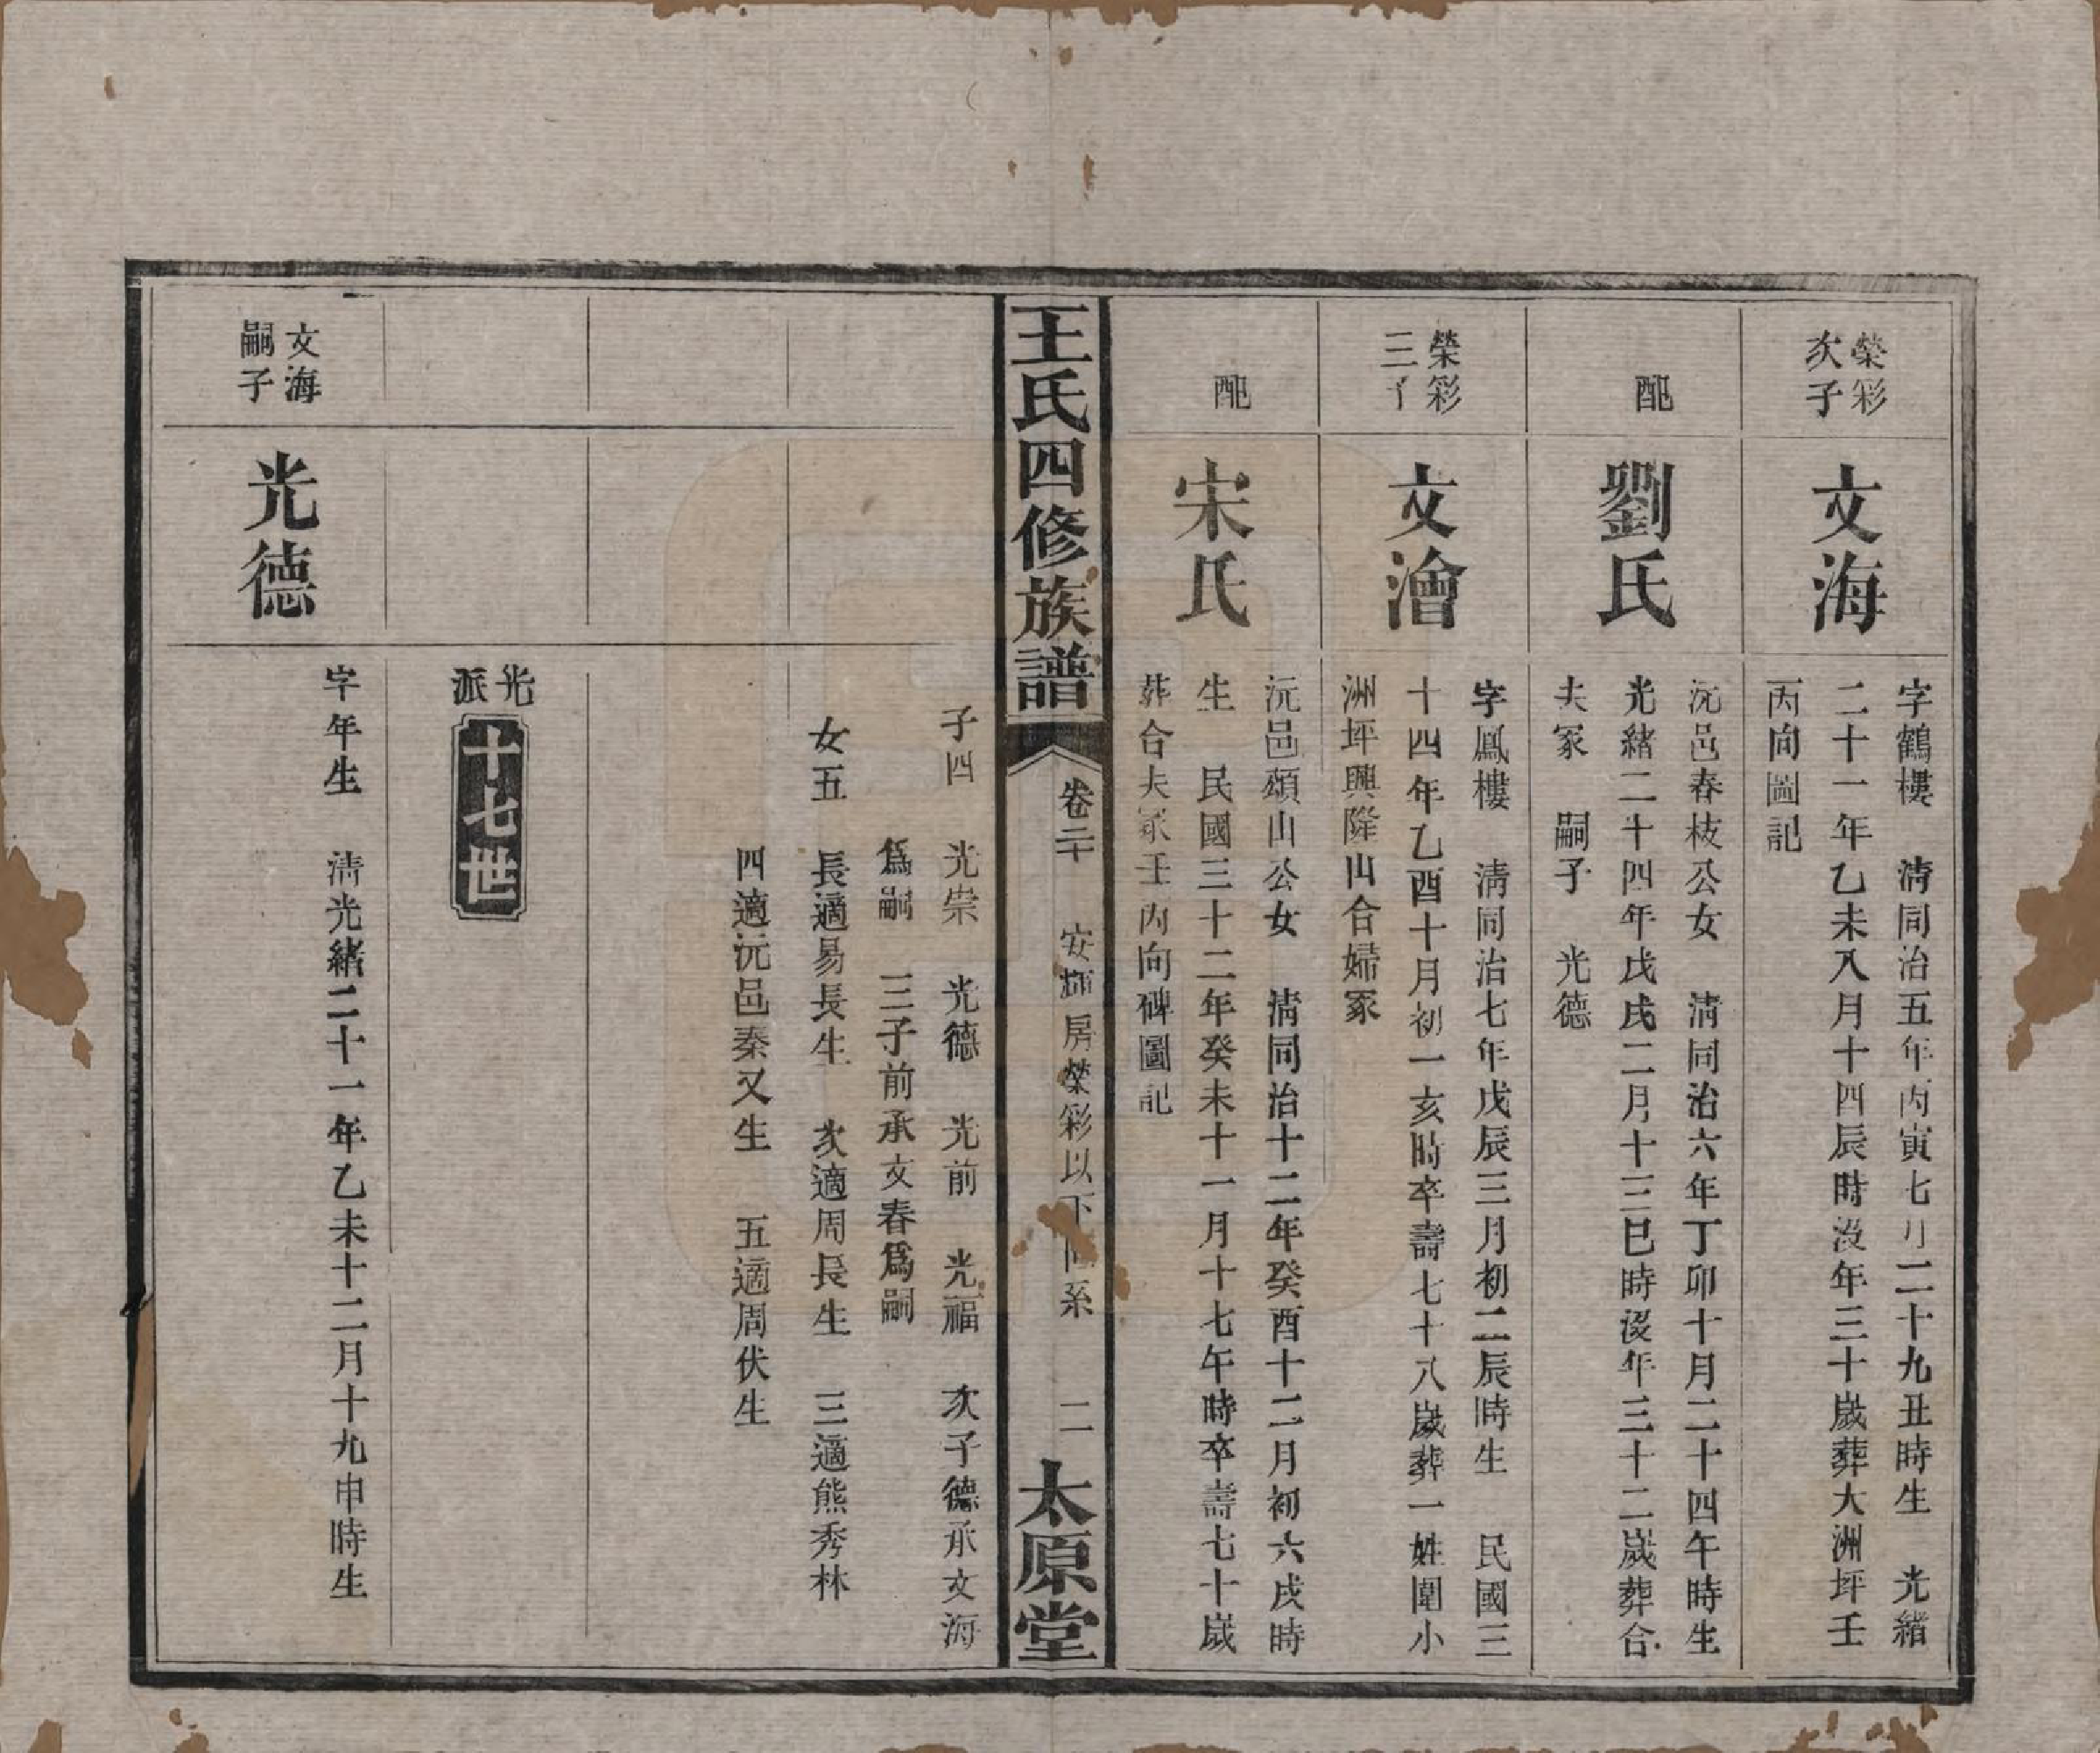 榮彩
次子
文海
字鶴樓　清同治五年丙寅七月二十九丑時生　光緒
二十一年乙未八月十四辰時沒年三十歲葬大洲坪壬
丙向圖記
配
劉氏
沅邑春枝公女　清同治六年丁卯十月二十四午時生
光緒二十四年戊戌二月十三巳時沒年三十二歲葬合
夫冢　嗣子　光德
榮彩
三子
文澮
字鳳樓　清同治七年戊辰三月初二辰時生　民國三
十四年乙酉十月初一亥時卒壽七十八歲葬一姓圍小
洲坪興隆山合婦冢
配
宋氏
沅邑頌山公女　清同治十二年癸酉十二月初六戌時
生　民國三十二年癸未十一月十七午時卒壽七十歲
葬合夫冢壬丙向碑圖記
王氏四修族譜
卷二十　安輝房榮彩以下世系　二
太原堂
子四　光崇　光德　光前　光福　次子德承文海
爲嗣　三子前承文春爲嗣
女五　長適易長生　次適周長生　三適熊秀林
四適沅邑秦又生　五適周伏生
光
派
十七世
文海
嗣子
光德
字年生　清光緒二十一年乙未十二月十九申時生